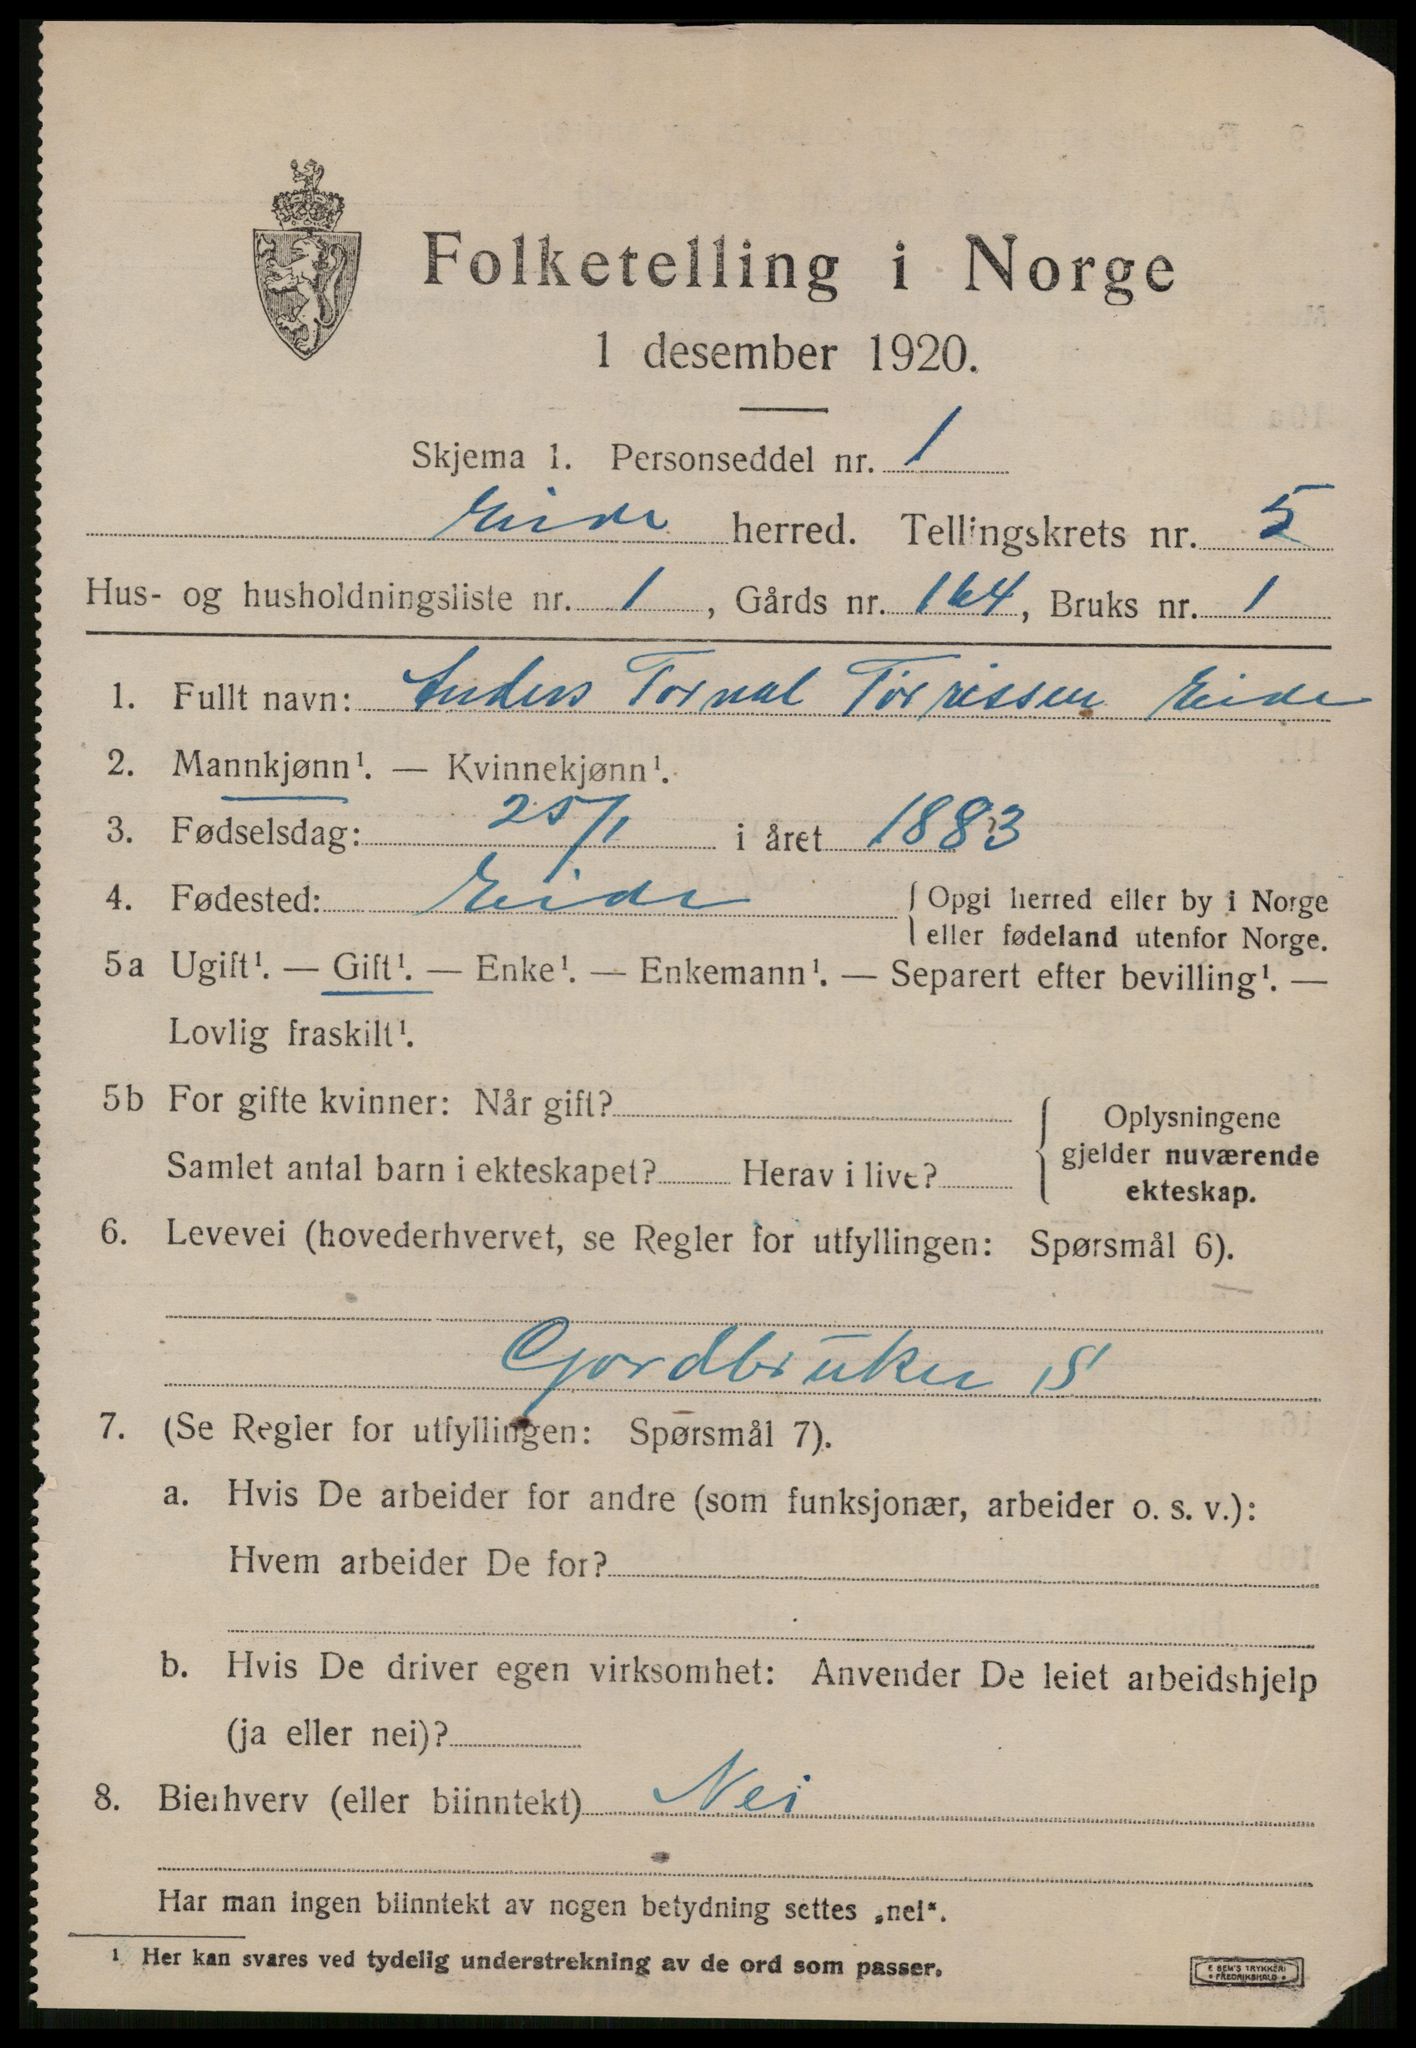 Folketelling i Norge
1 desember 1920.
Skjema 1. Personseddel nr. 1
Eide herred. Tellingskrets nr. 5
Hus- og husholdningsliste nr. 1, Gårds nr. 164, Bruks nr. 1
1. Fullt navn: Anders Tornal Tørrissen Eide
2. Mannkjønn¹. — Kvinnekjønn¹.
3. Fødselsdag: 25/1 i året 1883
4. Fødested: Eide { Opgi herred eller by i Norge
eller fødeland utenfor Norge.
5a Ugift¹. — Gift¹. — Enke¹. — Enkemann¹. — Separert efter bevilling¹. —
Lovlig fraskilt¹.
5b For gifte kvinner: Når gift?
Samlet antal barn i ekteskapet? Herav i live?
Oplysningene
gjelder nuværende
ekteskap.
6. Levevei (hovederhvervet, se Regler for utfyllingen: Spørsmål 6).
Gordbruker S
7. (Se Regler for utfyllingen: Spørsmål 7).
a. Hvis De arbeider for andre (som funksjonær, arbeider o. s. v.):
Hvem arbeider De for?
b. Hvis De driver egen virksomhet: Anvender De leiet arbeidshjelp
(ja eller nei)?
8. Bierhverv (eller biinntekt) Nei
Har man ingen biinntekt av nogen betydning settes „nei“.
¹ Her kan svares ved tydelig understrekning av de ord som passer.
E SEM'S TRYKKERI
• FREDRIKSHALD •